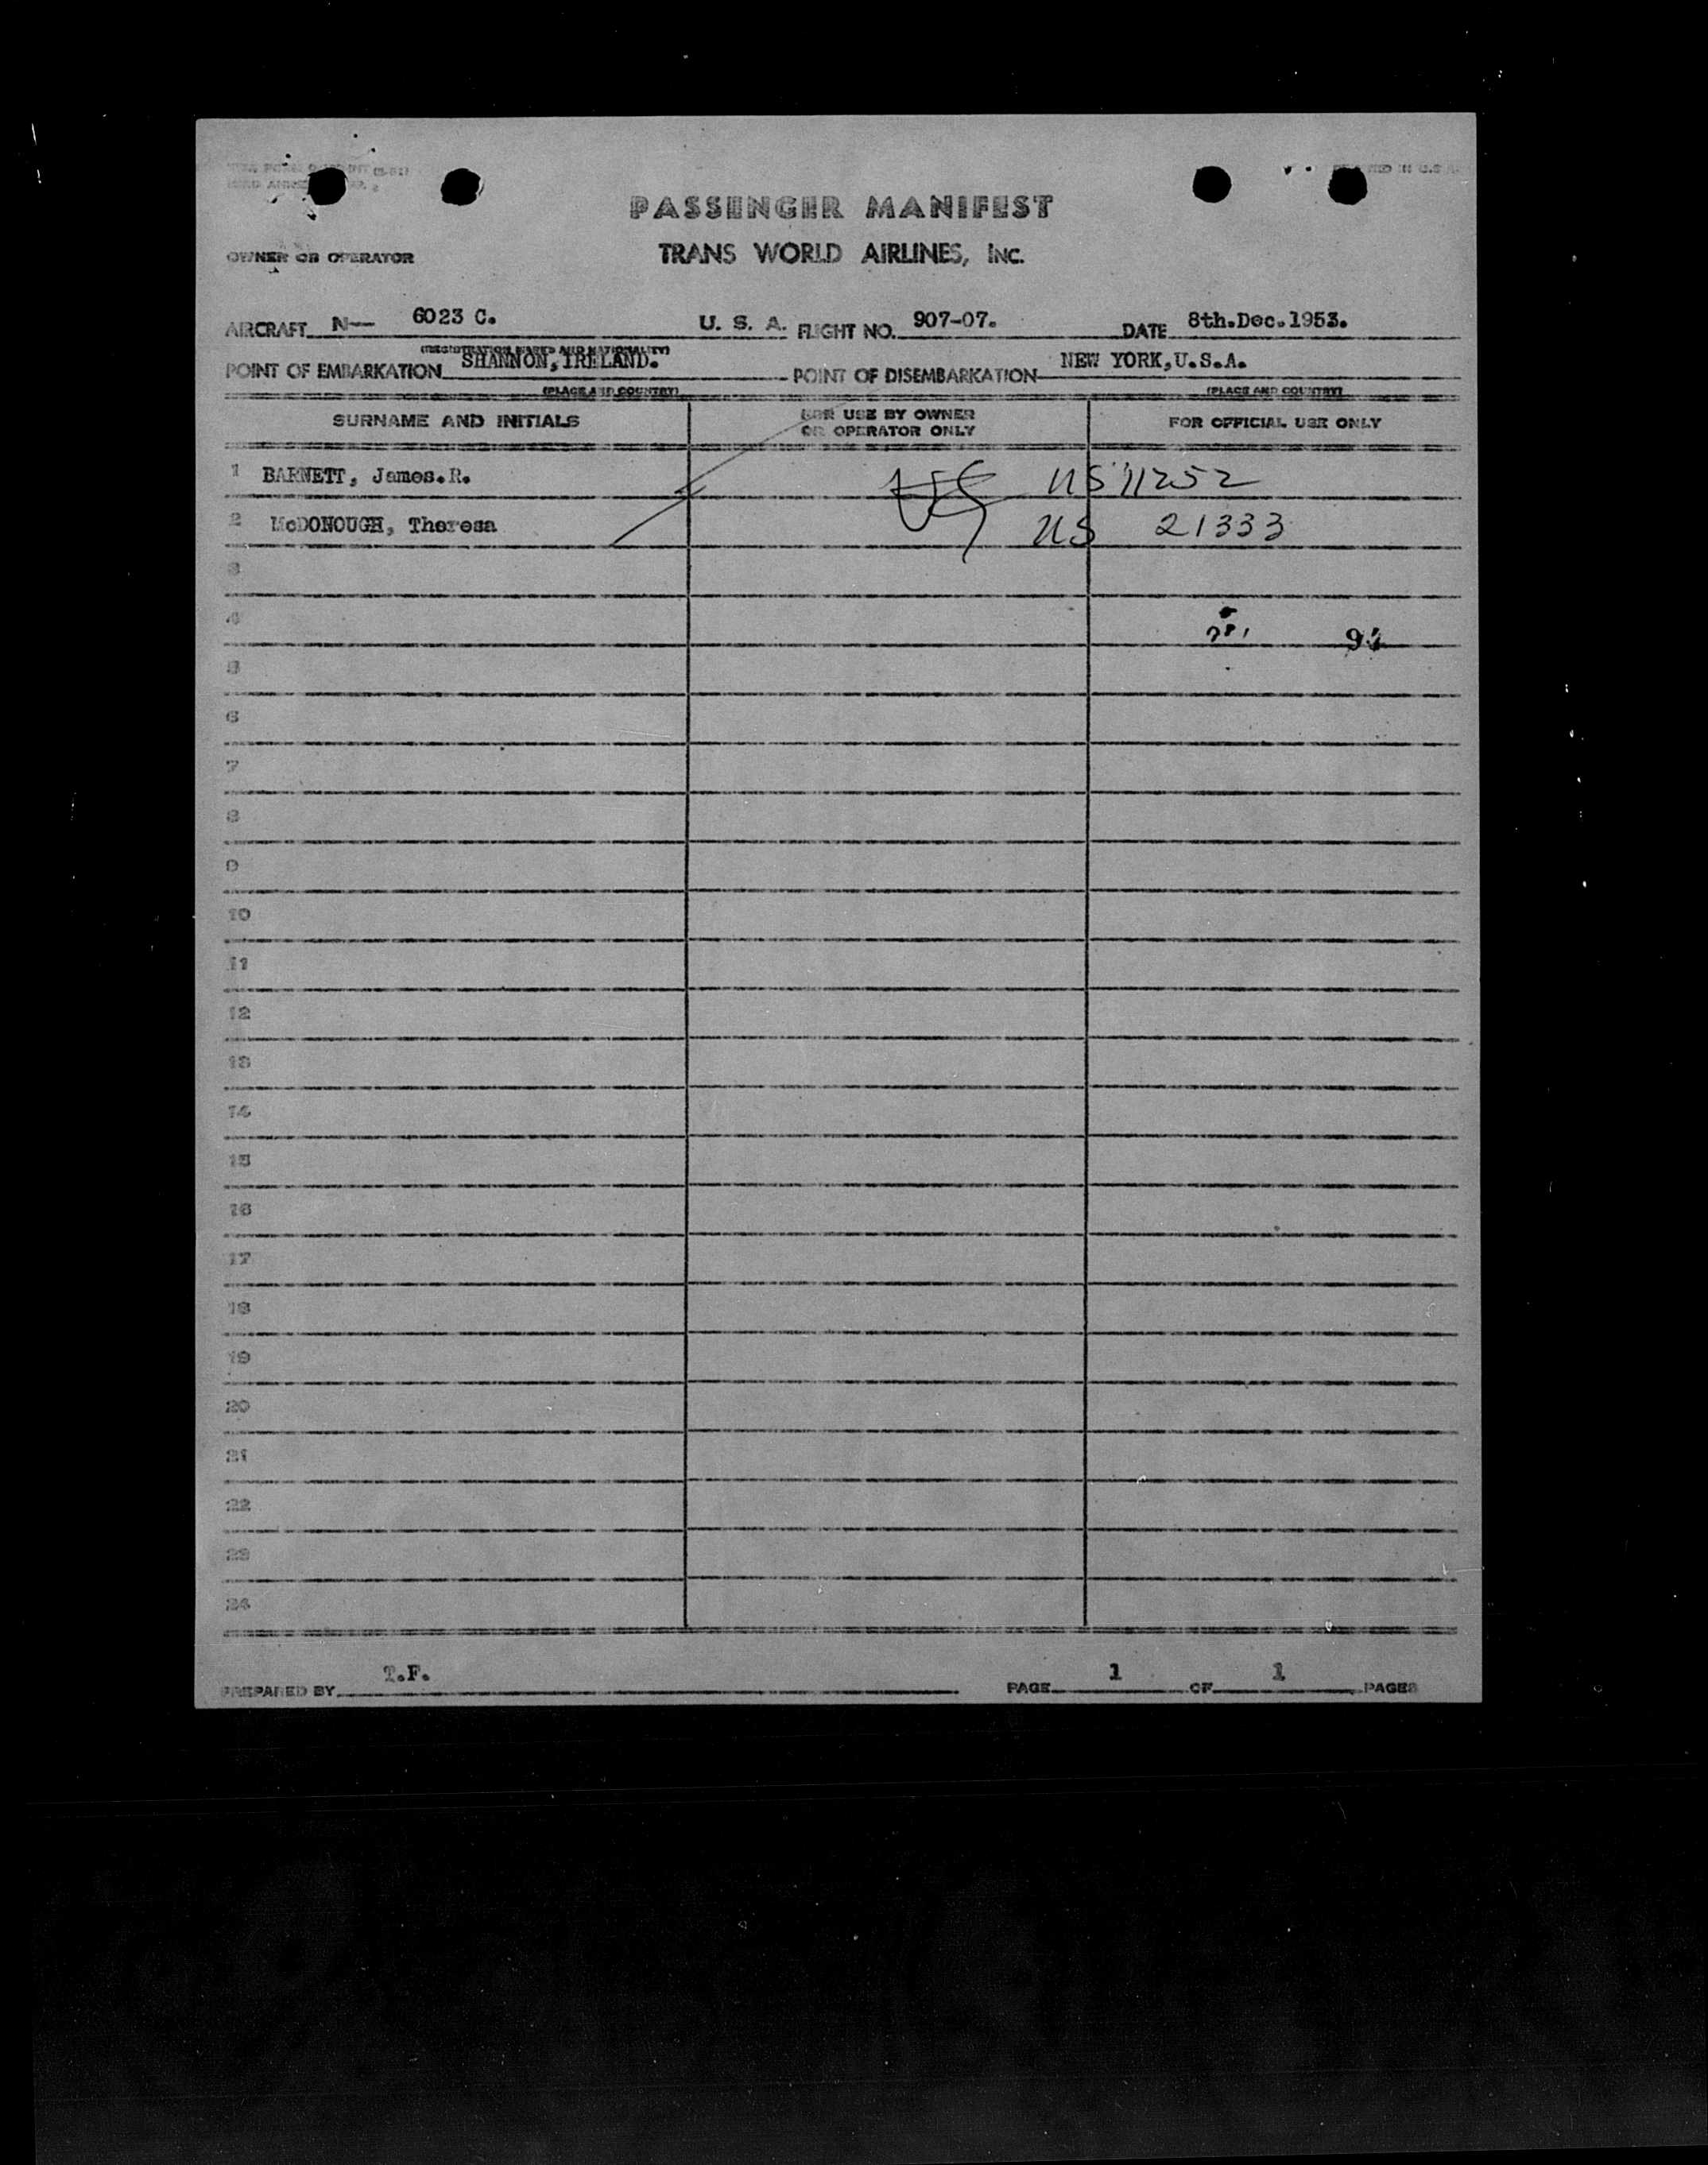 PASSENGER MANIFEST
OWNER OR OPERATOR TRANS WORLD AIRLINES, INC.
AIRCRAFT N— 6023 C. U. S. A. FLIGHT NO. 907-07. DATE 8th.Dec.1953.
(REGISTRATION MARKS AND NATIONALITY)
POINT OF EMBARKATION SHANNON,IRELAND. POINT OF DISEMBARKATION NEW YORK,U.S.A.
(PLACE AND COUNTRY) (PLACE AND COUNTRY)
SURNAME AND INITIALS FOR USE BY OWNER OR OPERATOR ONLY FOR OFFICIAL USE ONLY
1 BARNETT, James.R. US 11252
2 McDONOUGH, Theresa US 21333
3
4
5
6
7
8
9
10
11
12
13
14
15
16
17
18
19
20
21
22
23
24
PREPARED BY T.F. PAGE 1 OF 1 PAGES